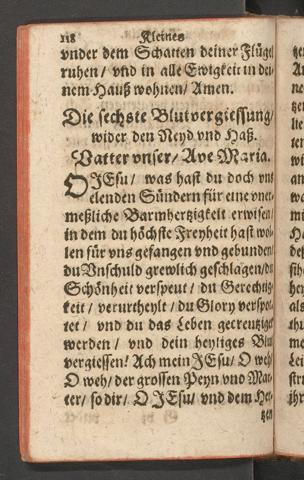 118 Kleines
vnder dem Schatten deiner Flügel
ruhen / vnd in alle Ewigkeit in dei-
nem Hauß wohnen / Amen.
Die sechste Blutvergiessung /
wider den Neyd vnd Haß.
Vatter vnser / Ave Maria.
O JEsu / was hast du doch vns
elenden Sündern für eine vner-
meßliche Barmhertzigkeit erwisen /
in dem du höchste Freyheit hast wol-
len für vns gefangen vnd gebunden /
du Vnschuld grewlich geschlagen / du
Schönheit verspeut / du Gerechtig-
keit / verurtheylt / du Glory verspot-
tet / vnd du das Leben gecreutziget
werden / vnd dein heyliges Blut
vergiessen! Ach mein JEsu / O weh /
O weh / der grossen Peyn vnd Mar-
ter / so dir / O JEsu / vnd dem Her-
tzen